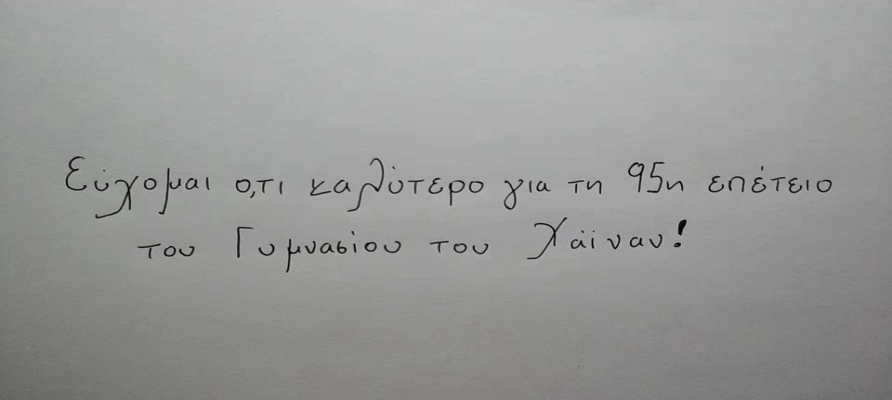 Εύχομαι ο,τι καλύτερο για τη 95η επέτειο
του Γυμνασίου του Χάϊναν!